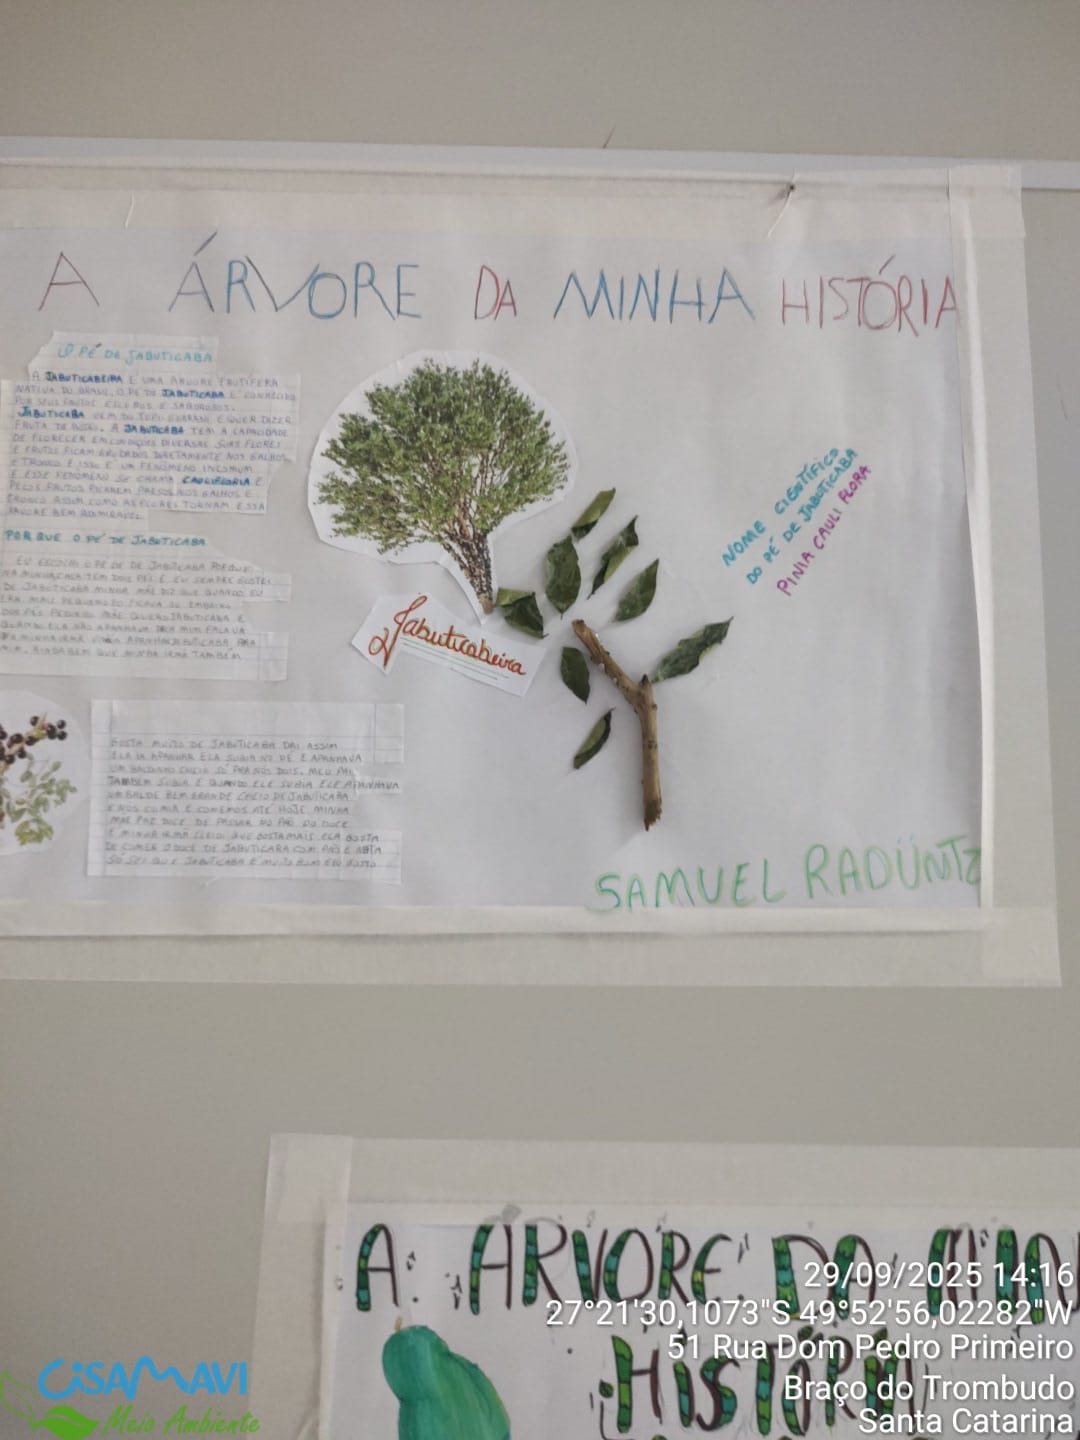 A ÁRVORE DA MINHA HISTÓRIA
O PÉ DE JABUTICABA
A JABUTICABEIRA É UMA ÁRVORE FRUTÍFERA
NATIVA DO BRASIL. O PÉ DE JABUTICABA É CONHECIDO
POR SEUS FRUTOS ESCUROS E SABOROSOS.
JABUTICABA VEM DO TUPI-GUARANI E QUER DIZER
FRUTA DE BOTÃO. A JABUTICABA TEM A CAPACIDADE
DE FLORECER EM CONDIÇÕES DIVERSAS SUAS FLORES
E FRUTOS FICAM GRUDADOS DIRETAMENTE NOS GALHOS
E TRONCO E ISSO É UM FENÔMENO INCOMUM
E ESSE FENOMENO SE CHAMA CAULIFLORIA E
PELOS FRUTOS FICAREM PRESOS NOS GALHOS E
TRONCO ASSIM COMO AS FLORES TORNAM ESSA
ÁRVORE BEM ADMIRAVEL
POR QUE O PÉ DE JABUTICABA
EU ESCOLHI O PÉ DE JABUTICABA PORQUE
NA MINHA CASA TEM DOIS PÉS E EU SEMPRE GOSTEI
DE JABUTICABA MINHA MÃE DIZ QUE QUANDO EU
ERA MAIS PEQUENO EU FICAVA LÁ EMBAIXO
DOS PÉS PEDINDO MÃE QUERO JABUTICABA E
QUANDO ELA NÃO APANHAVA PRA MIM FALAVA
PRA MINHA IRMÃ APANHAR JABUTICABA PRA
MIM. AINDA BEM QUE MINHA IRMÃ TAMBÉM
GOSTA MUITO DE JABUTICABA DAI ASSIM
ELA IA APANHAR ELA SUBIA NO PÉ E APANHAVA
UM BALDINHO CHEIO SÓ PRA NÓS DOIS. MEU PAI
TAMBÉM SUBIA E QUANDO ELE SUBIA ELE APANHAVA
UM BALDE BEM GRANDE CHEIO DE JABUTICABA
E NÓS COMIA E COMEMOS ATÉ HOJE. MINHA
MÃE FAZ DOCE DE PASSAR NO PÃO DO DOCE
E MINHA IRMÃ CLEIDI QUE GOSTA MAIS ELA GOSTA
DE COMER O DOCE DE JABUTICABA COM PÃO E NATA
SÓ SEI QUE JABUTICABA É MUITO BOM EU GOSTO
Jabuticabeira
NOME CIENTÍFICO
DO PÉ DE JABUTICABA
PINIA CAULI FLORA
SAMUEL RADÜNTZ
A ÁRVORE DA MIN
HISTÓRIA
29/09/2025 14:16
27°21'30,1073"S 49°52'56,02282"W
51 Rua Dom Pedro Primeiro
Braço do Trombudo
Santa Catarina
CISAMAVI
Meio Ambiente